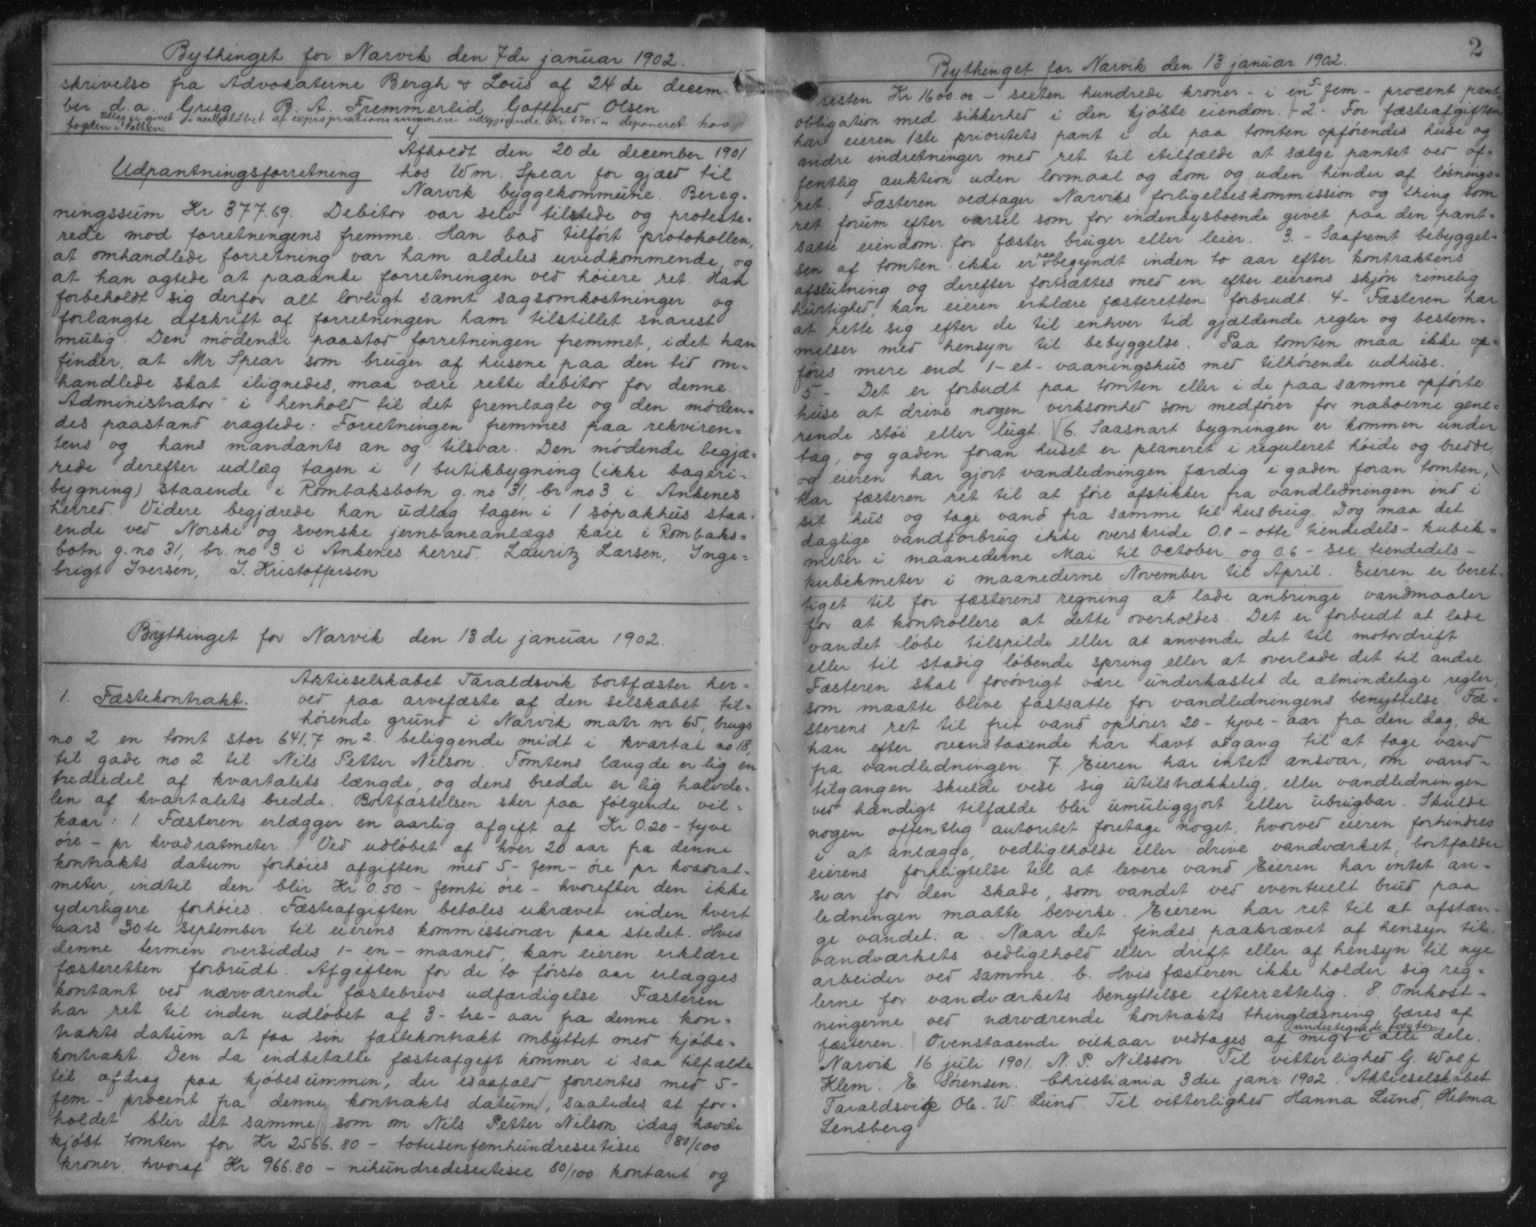 Bythinget for Narvik den 7de januar 1902.
skrivelse fra Advokaterne Bergh & Lous af 24de decem-
ber d.a. Grieg B. A. Fremmerlid Gottfred Olsen
fogden i Lofoten
4
Afholdt den 20de december 1901
Udpantningsforretning hos Wm. Spear for gjæld til
Narvik byggekommune. Bereg-
ningssum Kr 377.69. Debitor var selv tilstede og proteste-
rede mod forretningens fremme. Han bad tilført protokollen,
at omhandlede forretning var ham aldeles uvedkommende, og
at han agtede at paaanke forretningen ved høiere ret. Han
forbeholdt sig derfor alt lovligt samt sagsomkostninger og
forlangte afskrift af forretningen ham tilstillet snarest
mulig. Den mødende paastod forretningen fremmet, idet han
finder, at Mr Spear som bruger af husene paa den tid om-
handlede skat ilignedes, maa være rette debitor for denne.
Administrator i henhold til det fremlagte og den møden-
des paastand eragtede: Forretningen fremmes paa rekviren-
tens og hans mandants an og tilsvar. Den mødende begjæ-
rede derefter udlæg tagen i 1 butikbygning (ikke bageri-
bygning) staaende i Rombaksbotn g. no 31, br. no 3 i Ankenes
herred. Videre begjærede han udlæg tagen i 1 søpakhus staa-
ende ved Norske og svenske jernbaneanlægs kaie i Rombaks-
botn g. no 31, br. no 3 i Ankenes herred. Lauritz Larsen, Inge-
brigt Iversen, J. Kristoffersen
Bythinget for Narvik den 13de januar 1902.
Aktieselskabet Taraldsvik bortfæster her-
1. Fæstekontrakt. ved paa arvefæste af den selskabet til-
hørende grund i Narvik matr nr 65, brugs
no 2 en tomt stor 641,7 m² beliggende midt i kvartal no 18,
til gade no 2 til Nils Petter Nilson. Tomtens længde er lig en
trediedel af kvartalets længde, og dens bredde er lig halvde-
len af kvartalets bredde. Bortfæstelsen sker paa følgende vil-
kaar: 1 Fæsteren erlægger en aarlig afgift af Kr 0.20 - tyve
øre - pr kvadratmeter. Ved udløbet af hver 20 aar fra denne
kontrakts datum forhøies afgiften med 5 - fem - øre pr kvadrat-
meter, indtil den blir Kr 0.50 - femti øre - hvorefter den ikke
yderligere forhøies. Fæsteafgiften betales ukrævet inden hvert
aars 30te september til eierens kommissionær paa stedet. Hvis
denne termin oversiddes 1 - en - maaned, kan eieren erklære
fæsteretten forbrudt. Afgiften for de to første aar erlægges
kontant ved nærværende fæstebrevs udfærdigelse. Fæsteren
har ret til inden udløbet af 3 - tre - aar fra denne kon-
trakts datum at faa sin fæstekontrakt ombyttet med kjøbe-
kontrakt. Den da indbetalte fæsteafgift kommer i saa tilfælde
til afdrag paa kjøbesummen, der isaafald forrentes med 5 -
fem - procent fra denne kontrakts datum, saaledes at for-
holdet blir det samme som om Nils Petter Nilson idag havde
kjøbt tomten for Kr 2566.80 - totusenfemhundresextisex 80/100
kroner, hvoraf Kr 966.80 - nihundredesextisex 80/100 kontant og
2
Bythinget for Narvik den 13 januar 1902.
resten Kr 1600.00 - sexten hundrede kroner - i en 5 - fem - procent pant
obligation med sikkerhed i den kjøbte eiendom. - 2 - For fæsteafgiften
har eieren 1ste prioritets pant i de paa tomten opførendes huse og
andre indretninger med ret til itilfælde at sælge pantet ved of-
fentlig auktion uden lovmaal og dom og uden hinder af løsnings-
ret. Fæsteren vedtager Narviks forligelseskommission og thing som
ret forum efter varsel som for indenbysboende givet paa den pant-
satte eiendom for fæster bruger eller leier. 3. - Saafremt bebyggel-
sen af tomten ikke er paabegyndt inden to aar efter kontraktens
afslutning og derefter fortsættes med en efter eierens skjøn rimelig
hurtighed, kan eieren erklære fæsteretten forbrudt. 4 - Fæsteren har
at rette sig efter de til enhver tid gjældende regler og bestem-
melser med hensyn til bebyggelse. Paa tomten maa ikke op-
føres mere end 1 - et - vaaningshus med tilhørende udhuse.
5 - Det er forbudt paa tomten eller i de paa samme opførte
huse at drive nogen virksomhed som medfører for naboerne gene-
rende støi eller lugt. 6. Saasnart bygningen er kommen under
tag, og gaden foran huset er planeret i reguleret høide og bredde
og eieren har gjort vandledningen færdig i gaden foran tomten,
har fæsteren ret til at føre afstikker fra vandledningen ind i
sit hus og tage vand fra samme til husbrug. Dog maa det
daglige vandforbrug ikke overskride 0.8 - otte tiendedels - kubik-
meter i maanederne Mai til October og 0.6 - sex tiendedels -
kubikmeter i maanederne November til April. Eieren er beret-
tiget til for fæsterens regning at lade anbringe vandmaaler
for at kontrollere at dette overholdes. Det er forbudt at lade
vandet løbe tilspilde eller at anvende det til motordrift
eller til stadig løbende spring eller at overlade det til andre
Fæsteren skal forøvrigt være underkastet de almindelige regler,
som maatte blive fastsatte for vandledningens benyttelse. Fæ-
sterens ret til frit vand ophører 20 - tyve - aar fra den dag, da
han efter ovenstaaende har havt adgang til at tage vand
fra vandledningen. 7. Eieren har intet ansvar, om vand-
tilgangen skulde vise sig utilstrækkelig, eller vandledningen
ved hændigt tilfælde blir umuliggjort eller ubrugbar. Skulde
nogen offentlig autoritet foretage noget, hvorved eieren forhindres
i at anlægge, vedligeholde eller drive vandværket, bortfalder
eierens forpligtelse til at levere vand. Eieren har intet an-
svar for den skade, som vandet ved eventuelt brud paa
ledningen maatte bevirke. Eieren har ret til at afstæn-
ge vandet: a. Naar det findes paakrævet af hensyn til
vandværkets vedligehold eller drift eller af hensyn til nye
arbeider ved samme. b. Hvis fæsteren ikke holder sig reg-
lerne for vandværkets benyttelse efterrettelig. 8. Omkost-
ningerne ved nærværende kontrakts thinglæsning bæres af
fæsteren. Ovenstaaende vilkaar vedtages af undertegnede fæster mig i alle dele.
Narvik 16 juli 1901. N. P. Nilsson Til vitterlighed G. Wolf
Klem. E. Sørensen. Christiania 3die janr 1902. Aktieselskabet
Taraldsvik Ole. W. Lund Til vitterlighed Hanna Lund, Helma
Lensberg